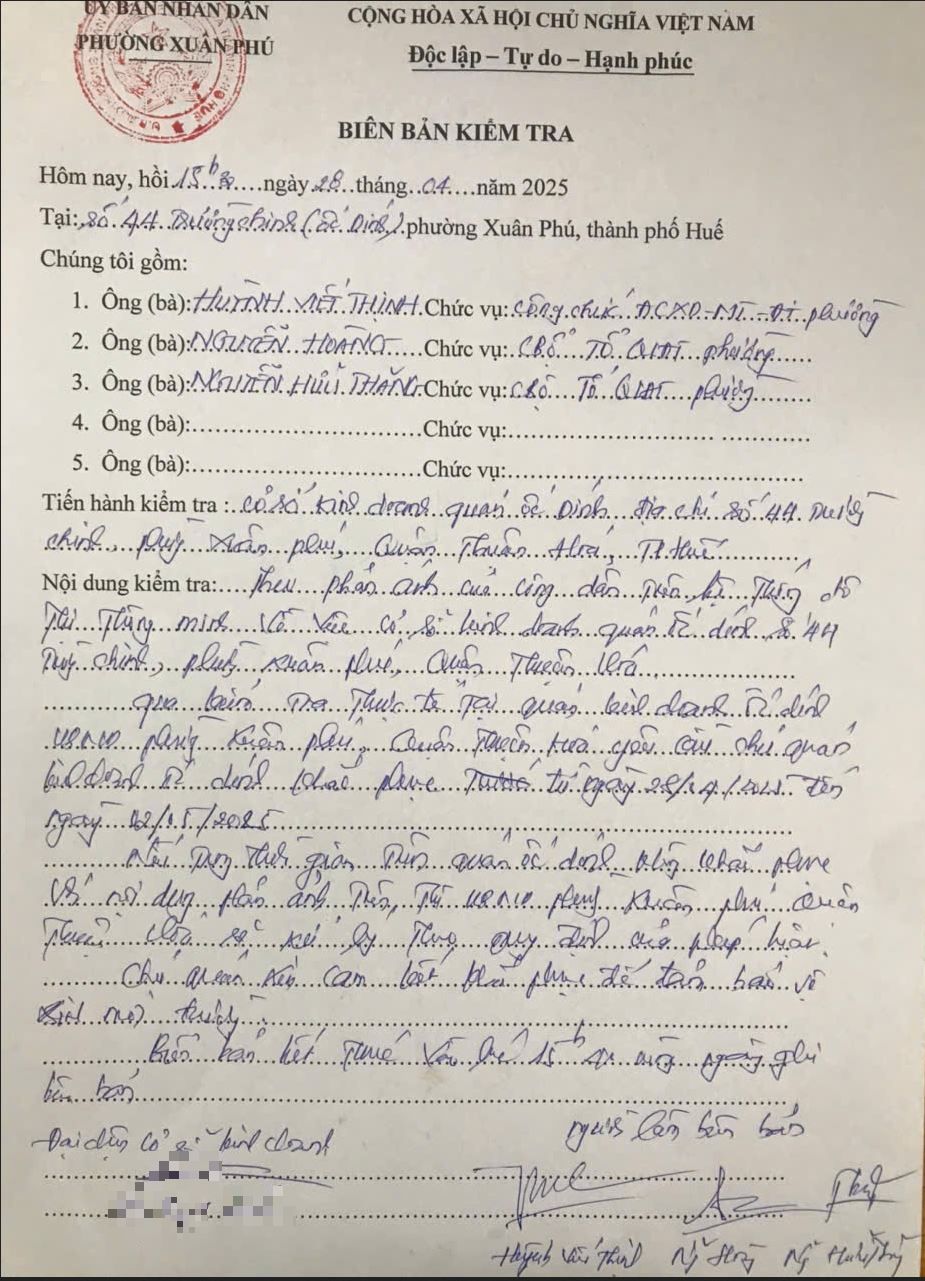 ỦY BAN NHÂN DÂN
PHƯỜNG XUÂN PHÚ
CỘNG HÒA XÃ HỘI CHỦ NGHĨA VIỆT NAM
Độc lập – Tự do – Hạnh phúc
BIÊN BẢN KIỂM TRA
Hôm nay, hồi 15h ngày 28 tháng 04 năm 2025
Tại: số 44 Trường Chinh (Ốc Dinh) phường Xuân Phú, thành phố Huế
Chúng tôi gồm:
1. Ông (bà): HUỲNH VIẾT THỊNH Chức vụ: Công chức ĐCXD-MT-ĐT phường
2. Ông (bà): NGUYỄN HOÀNG Chức vụ: CBộ Tổ QLĐT phường
3. Ông (bà): NGUYỄN HỮU THẮNG Chức vụ: CBộ Tổ QLĐT phường
4. Ông (bà): Chức vụ:
5. Ông (bà): Chức vụ:
Tiến hành kiểm tra : cơ sở kinh doanh quán ốc Dinh địa chỉ số 44 Trường
chinh, phường Xuân phú, Quận Thuận Hoá, TP Huế
Nội dung kiểm tra: Theo phản ánh của công dân trên hệ thống đô
thị thông minh về việc cơ sở kinh doanh quán ốc dinh số 44
Trường chinh, phường Xuân phú, Quận Thuận Hoá
qua kiểm tra thực tế tại quán kinh doanh ốc dinh
UBND phường Xuân phú, Quận Thuận Hoá yêu cầu chủ quán
kinh doanh ốc dinh khắc phục từ ngày 28/04/2025 đến
ngày 02/05/2025
Nếu trong thời gian trên quán ốc dinh không khắc phục
về nội dung phản ánh trên, thì UBND phường Xuân phú Quận
Thuận Hoá sẽ xử lý theo quy định của pháp luật
Chủ quán cam kết khắc phục để đảm bảo vệ
sinh môi trường.
Biên bản kết thúc vào lúc 15h cùng ngày ghi
biên bản
Đại diện cơ sở kinh doanh
người lập biên bản
Huỳnh Viết Thịnh Ng Hoàng Ng Hữu Thắng